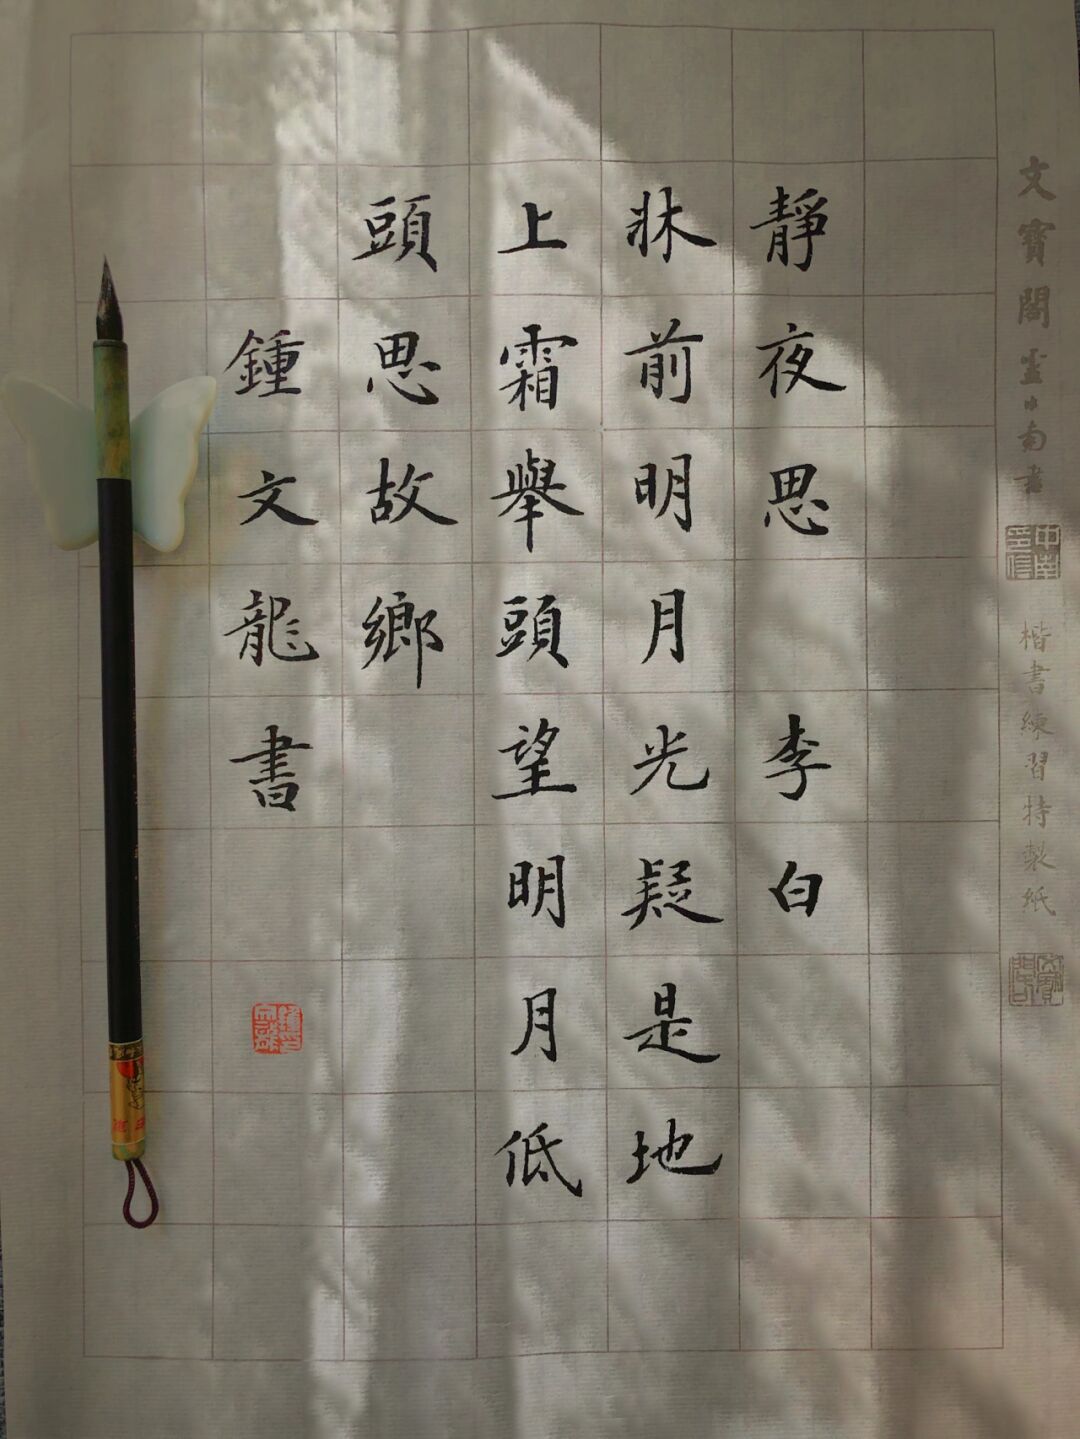 文寶閣
楷書練習特製紙
靜夜思 李白
牀前明月光疑是地
上霜舉頭望明月低
頭思故鄉
鍾文龍書